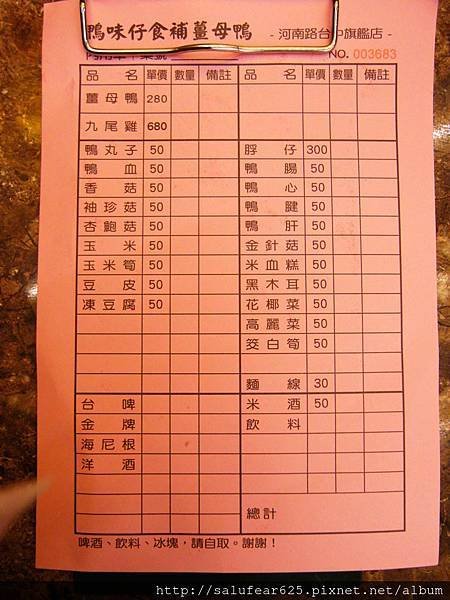 鴨味仔食補薑母鴨 - 河南路台中旗艦店 -
NO. 003683
品名 單價 數量 備註 品名 單價 數量 備註
薑母鴨 280
九尾雞 680
鴨丸子 50 脬仔 300
鴨血 50 鴨腸 50
香菇 50 鴨心 50
袖珍菇 50 鴨腱 50
杏鮑菇 50 鴨肝 50
玉米 50 金針菇 50
玉米筍 50 米血糕 50
豆皮 50 黑木耳 50
凍豆腐 50 花椰菜 50
高麗菜 50
筊白筍 50
麵線 30
台啤 米酒 50
金牌 飲料
海尼根
洋酒
總計
啤酒、飲料、冰塊，請自取。謝謝！
http://salufear625.pixnet.net/album